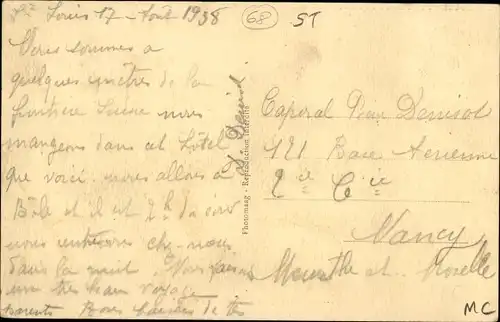 St Louis 17 - Août 1938
68
ST
Nous sommes a
quelques mètres de la
frontiere Suisse nous
mangeons dans cet hôtel
que voici nous allons a
Bâle et il est 2h du soir
nous rentrerons chez nous
dans la nuit. Nous faisons
un tres bon voyage
parents Bons baisers de tes
Denisot
Photomaag - Reproduction Interdite
Caporal Pierre Denisot
121 Base Aerienne
2ie Cie
Nancy
Meurthe et Moselle
MC